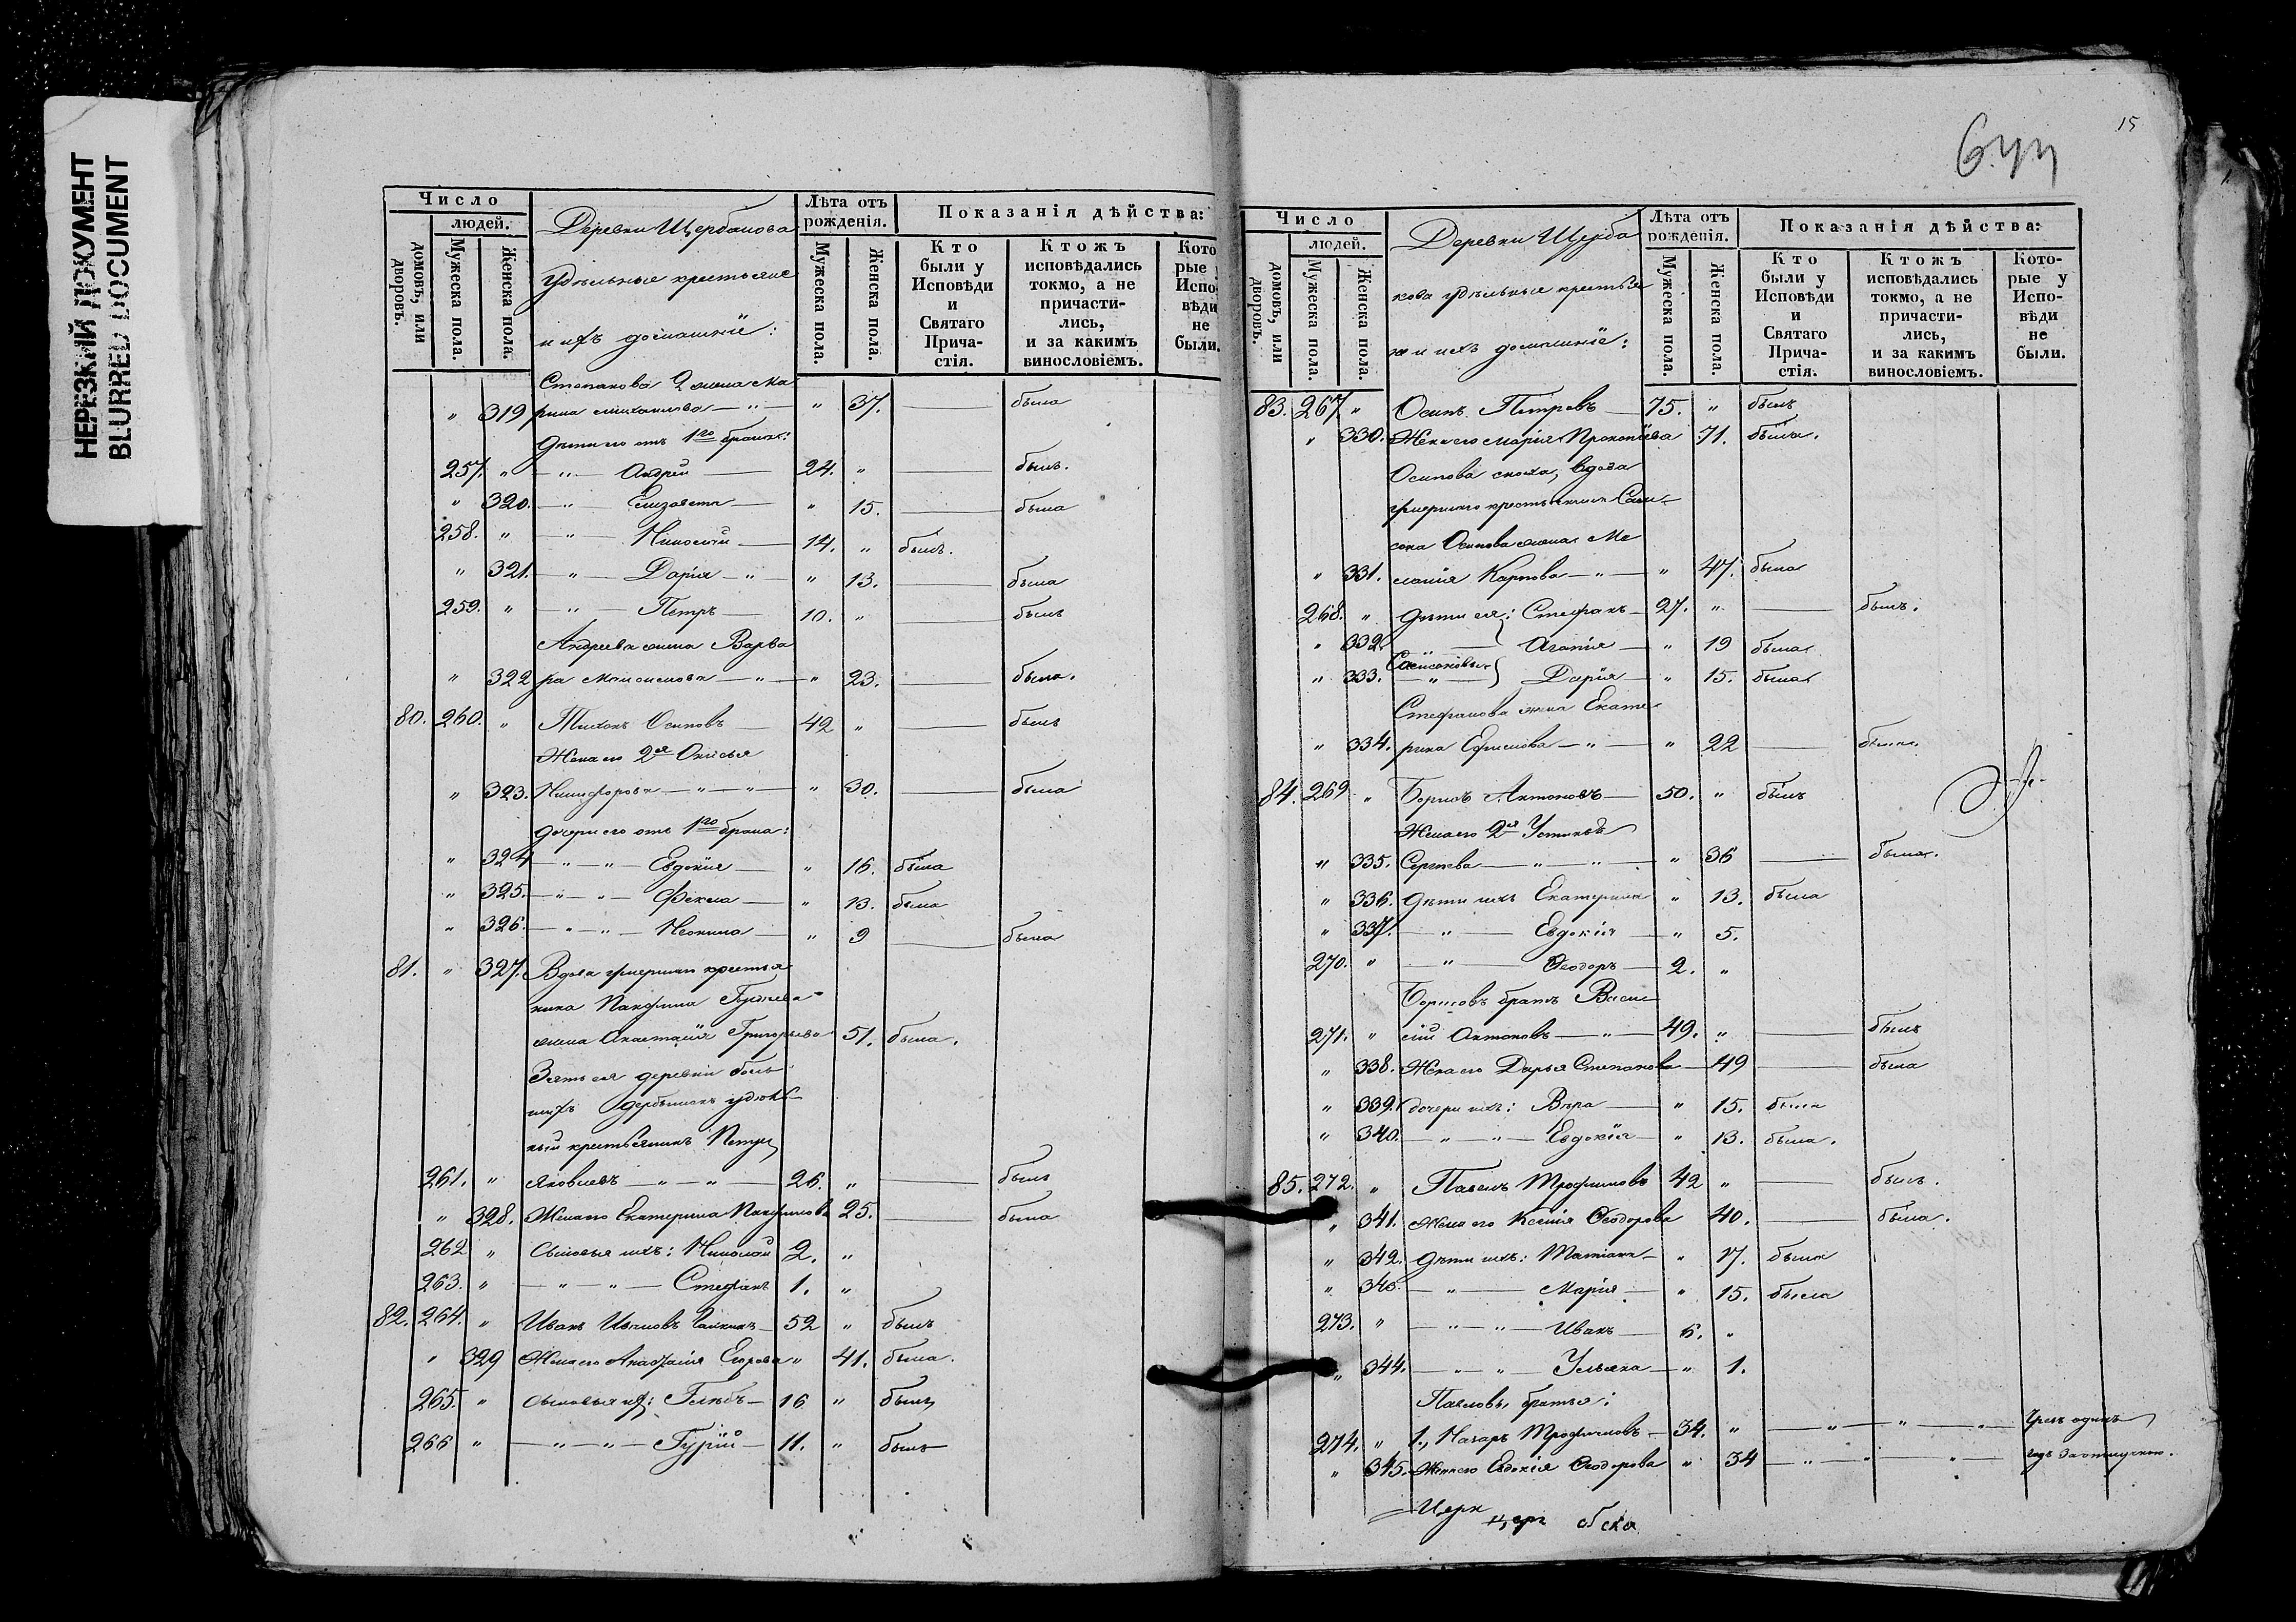 НЕРЕЗКИЙ ДОКУМЕНТ
BLURRED DOCUMENT
Число
людей.
домовъ, или дворовъ.
Мужеска пола.
Женска пола.
Деревни Щербакова
удѣльные крестьяне
и ихъ домашніе:
Лѣта отъ рожденія.
Мужеска пола.
Женска пола.
Показанія дѣйства:
Кто были у Исповѣди и Святаго Прича-стія.
Ктожъ исповѣдались токмо, а не причасти-лись, и за какимъ винословіемъ.
Кото рые Испо вѣди не были.
Степанова 2 жена Ма
" 319 рина — " — " 37. — была
дѣти его отъ 1го брака:
257. " — " — Андрей — 24. " — былъ.
" 320. — " — Елизавета — " 15. — была
258. " — " — Николай — 14. " былъ.
" 321. — " — Дарія — " — " 13. — была
259. " — " — Петръ — 10. " — былъ
Андреева жена Варва
" 322 ра — " — " 23. — была.
80. 260. " Тихонъ Осиповъ — 42 " — былъ
Жена его 2я
" 323. Никифорова — " — " — " 30. — была
дочери его отъ 1го брака:
" 324 — " — " — Евдокія — " 16. была
" 325. — " — " — Фекла — " 13. была
" 326. — " — " — Неонила — " 9 — была
81. " 327. Вдова умершаго крестья
нина Панфила
жена Анастасія Григорьева 51. была.
Зять ея деревни боль
шихъ удѣль
ный крестьянинъ Петръ
261. " Яковлевъ — " — " — 26. " — былъ
" 328. Жена его Екатерина Панфилова 25. — была
262 " Сыновья ихъ: Николай 2. "
263. " — " — " — Стефанъ 1. "
82. 264. " Иванъ — 52 " былъ
" 329 Жена его Егорова " 41. была.
265. " Сыновья ихъ: Глѣбъ — 16 " былъ
266 " — " — " — Гурій — 11. " былъ
15
Число
людей.
домовъ, или дворовъ.
Мужеска пола.
Женска пола.
Деревни Щерба
кова удѣльные крестья
не и ихъ домашніе:
Лѣта отъ рожденія.
Мужеска пола.
Женска пола.
Показанія дѣйства:
Кто были у Исповѣди и Святаго Прича-стія.
Ктожъ исповѣдались токмо, а не причасти-лись, и за какимъ винословіемъ.
Кото-рые у Испо-вѣди не были.
83. 267 " Осипъ Петровъ — 75. " былъ
" 330. Жена его Марія Прокопіева 71. была.
Осипова сноха, вдова
умершаго крестьянина Сам
сона Осипова жена Ме
" 331. ланія Карпова — " — " 47. была
268. " Дѣти ея: Стефанъ — 27. " — былъ.
" 332. — " — Агапія — " 19 была
Самсоновы
" 333. — " — Дарія — " 15. была
Стефанова жена Екате
" 334. рина Ефимова — " — " 22 — была
84. 269 " Борисъ Антоновъ — 50. " былъ
Жена его 2я Устинья
" 335. Сергѣева — " — " — " 36 — была.
" 336. Дѣти ихъ Екатерина " 13. была
" 337. — " — Евдокія — " 5.
270. " — " — Ѳеодоръ — 2. "
Борисовъ братъ Васи
271. " лій Антоновъ — " — 49. " — былъ
" 338. Жена его Дарья Степанова — 49 — была
" 339. Дочери ихъ: Вѣра — " 15. была
" 340. — " — " — Евдокія — " 13. была.
85. 272. " Павелъ Трофимовъ 42 " — былъ.
" 341. Жена его Ксенія Ѳеодорова 40. — была.
" 342. Дѣти ихъ: Татіана — " 17. была
" 343. — " — Марія — " 15. была
273. " — " — " — Иванъ — 6. "
" 344. — " — " Ульяна — " 1.
Павловы братья:
274. " 1., Назаръ Трофимовъ — 34. " — " — " — " — Чрезъ одинъ
" 345. Жена его Евдокія Ѳеодорова " 34 — " — " — " — годъ за отлучкою.